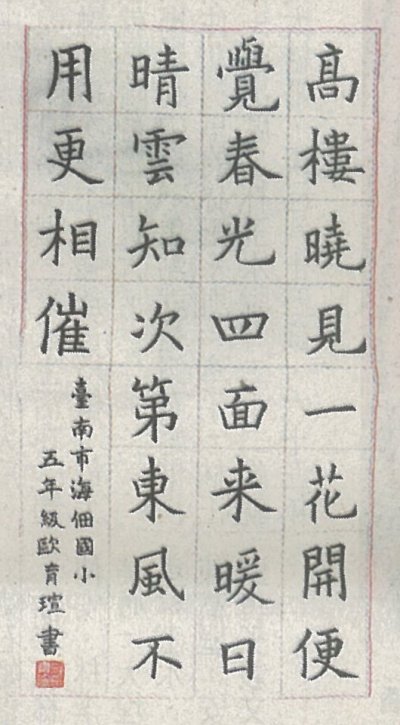 高樓曉見一花開便
覺春光四面来暖日
晴雲知次第東風不
用更相催
臺南市海佃國小
五年級歐育瑄書